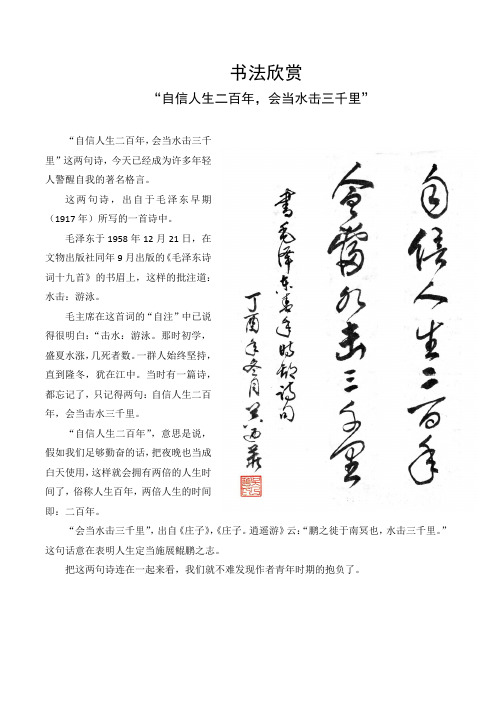 书法欣赏
“自信人生二百年，会当水击三千里”
“自信人生二百年，会当水击三千
里”这两句诗，今天已经成为许多年轻
人警醒自我的著名格言。
这两句诗，出自于毛泽东早期
（1917 年）所写的一首诗中。
毛泽东于 1958 年 12 月 21 日，在
文物出版社同年 9 月出版的《毛泽东诗
词十九首》的书眉上，这样的批注道：
水击：游泳。
毛主席在这首词的“自注”中已说
得很明白：“击水：游泳。那时初学，
盛夏水涨，几死者数。一群人始终坚持，
直到隆冬，犹在江中。当时有一篇诗，
都忘记了，只记得两句：自信人生二百
年，会当击水三千里。
“自信人生二百年”，意思是说，
假如我们足够勤奋的话，把夜晚也当成
白天使用，这样就会拥有两倍的人生时
间了，俗称人生百年，两倍人生的时间
即：二百年。
“会当水击三千里”，出自《庄子》，《庄子。逍遥游》云：“鹏之徙于南冥也，水击三千里。”
这句话意在表明人生定当施展鲲鹏之志。
把这两句诗连在一起来看，我们就不难发现作者青年时期的抱负了。
自信人生二百年
會當水击三千里
書毛泽东青年时期诗句
丁酉年冬月